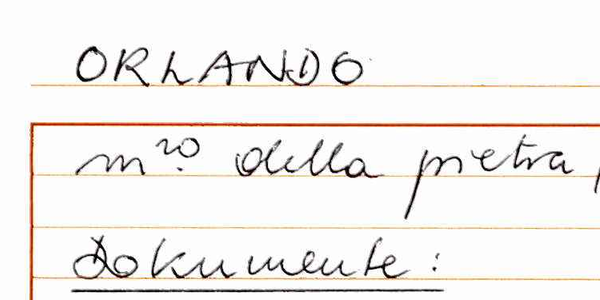 ORLANDO
m.ro della pietra
Dokumente: